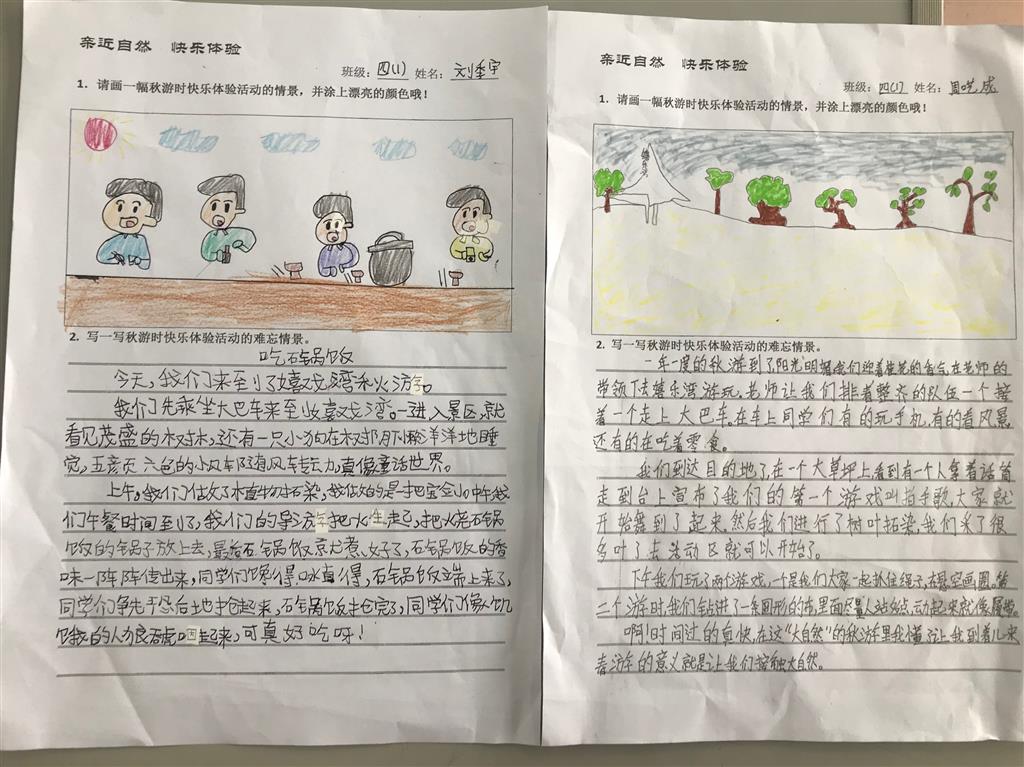 亲近自然 快乐体验
班级：四(1) 姓名：刘宇
1．请画一幅秋游时快乐体验活动的情景，并涂上漂亮的颜色哦！
2．写一写秋游时快乐体验活动的难忘情景。
吃石锅饭
今天，我们来到了嬉戏湾秋游。
我们先乘坐大巴车来至嬉戏湾。一进入景区，就
看见茂盛的树林，还有一只小狗在树阴下懒洋洋地睡
觉，五颜六色的小风车随着风车转动，真像童话世界。
上午，我们做了植物拓染，我做的是一把宝剑。中午我
们午餐时间到了，我们的导游把火生起了，把烧石锅
饭的锅子放上去，最后石锅饭煮好了，石锅饭的香
味一阵阵传出来，同学们馋得口水直流，石锅饭端上来了，
同学们争先恐后地抢起来，石锅饭抢完了，同学们像饥
饿的人狼吞虎咽起来，可真好吃呀！
亲近自然 快乐体验
班级：四(1) 姓名：周成
1．请画一幅秋游时快乐体验活动的情景，并涂上漂亮的颜色哦！
2．写一写秋游时快乐体验活动的难忘情景。
一年一度的秋游到了，阳光明媚，我们迎着桂花的香气，在老师的
带领下去嬉乐湾游玩，老师让我们排着整齐的队伍一个接
着一个走上大巴车。在车上同学们有的玩手机，有的看风景，
还有的在吃着零食。
我们到达目的地了，在一个大草坪上看到有一个人拿着话筒
走到台上宣布了我们的第一个游戏叫拍手歌，大家就
开始舞到了起来。然后我们进行了树叶拓染，我们采了很
多叶子去活动区就可以开始了。
下午我们玩了两个游戏，一个是我们大家一起抓住绳子，在悬空画圆，第
二个游时，我们钻进了一条圆形的布，里面尽量人站起点，动起来就像履带。
啊！时间过的真快，在这“大自然”的秋游里我懂了，让我到着
春游的意义就是让我们接触大自然。